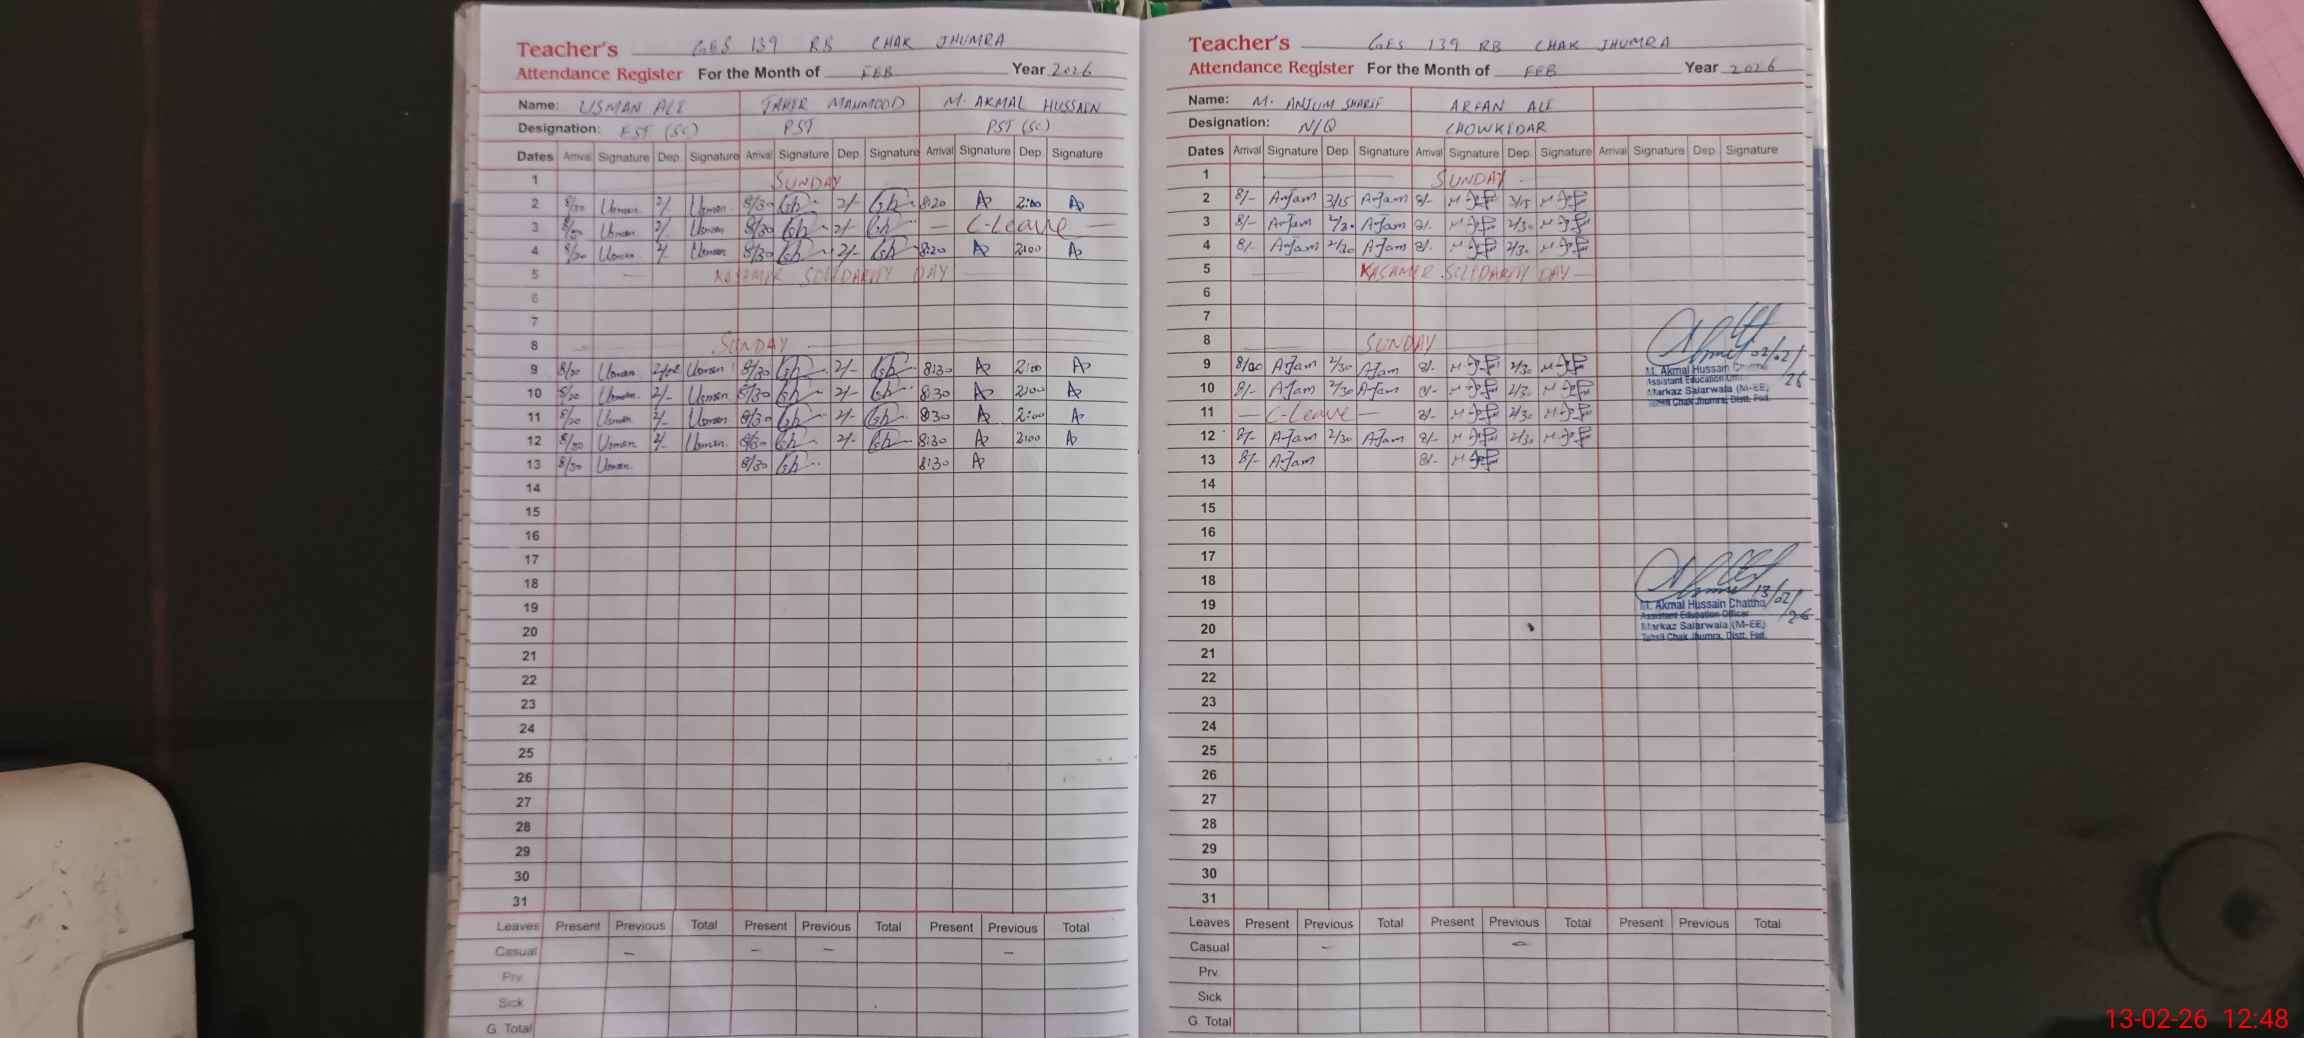 Teacher's GES 139 RB CHAK JHUMRA
Attendance Register For the Month of FEB Year 2026
Name: USMAN ALI TAHIR MAHMOOD M. AKMAL HUSSAIN
Designation: EST (SC) PST PST (SC)
Dates Arrival Signature Dep. Signature Arrival Signature Dep. Signature Arrival Signature Dep. Signature
1 SUNDAY
2 8/30 Usman 2/- Usman 8/30 2/- 8:20 2:00
3 Usman 2/- Usman 8/30 2/- C-Leave
4 Usman 2/- Usman 8/30 2/- 8:20 2:00
5 KASHMIR SOLIDARITY DAY
6
7
8 SUNDAY
9 8/30 Usman Usman 8/30 2/- 8:30 2:00
10 Usman 2/- Usman 8/30 2/- 8:30 2:00
11 Usman 2/- Usman 8/30 2/- 8:30 2:00
12 8/30 Usman 2/- Usman 8/30 2/- 8:30 2:00
13 8/30 Usman 8/30 8:30
14
15
16
17
18
19
20
21
22
23
24
25
26
27
28
29
30
31
Leaves Present Previous Total Present Previous Total Present Previous Total
Casual – – – –
Prv.
Sick
G. Total
Teacher's GES 139 RB CHAK JHUMRA
Attendance Register For the Month of FEB Year 2026
Name: M. ANJUM SHARIF ARFAN ALI
Designation: N/Q CHOWKIDAR
Dates Arrival Signature Dep. Signature Arrival Signature Dep. Signature Arrival Signature Dep. Signature
1 SUNDAY
2 8/- 3/15 8/- 3/15
3 8/- 2/30 8/- 2/30
4 8/- 2/30 8/- 2/30
5 KASHMIR SOLIDARITY DAY
6
7
8 SUNDAY
9 8/00 2/30 8/- 2/30
10 8/- 2/30 8/- 2/30
11 C-Leave 8/- 2/30
12 8/- 2/30 8/- 2/30
13 8/- 8/-
14
15
16
17
18
19
20
21
22
23
24
25
26
27
28
29
30
31
Leaves Present Previous Total Present Previous Total Present Previous Total
Casual – –
Prv.
Sick
G. Total
02/02/26
M. Akmal Hussain
Assistant Education
Markaz Salarwala (M-EE)
Tehsil Chak Jhumra, Distt. Fsd.
13/02/26
M. Akmal Hussain Chattha
Assistant Education Officer
Markaz Salarwala (M-EE)
Tehsil Chak Jhumra, Distt. Fsd.
13-02-26 12:48